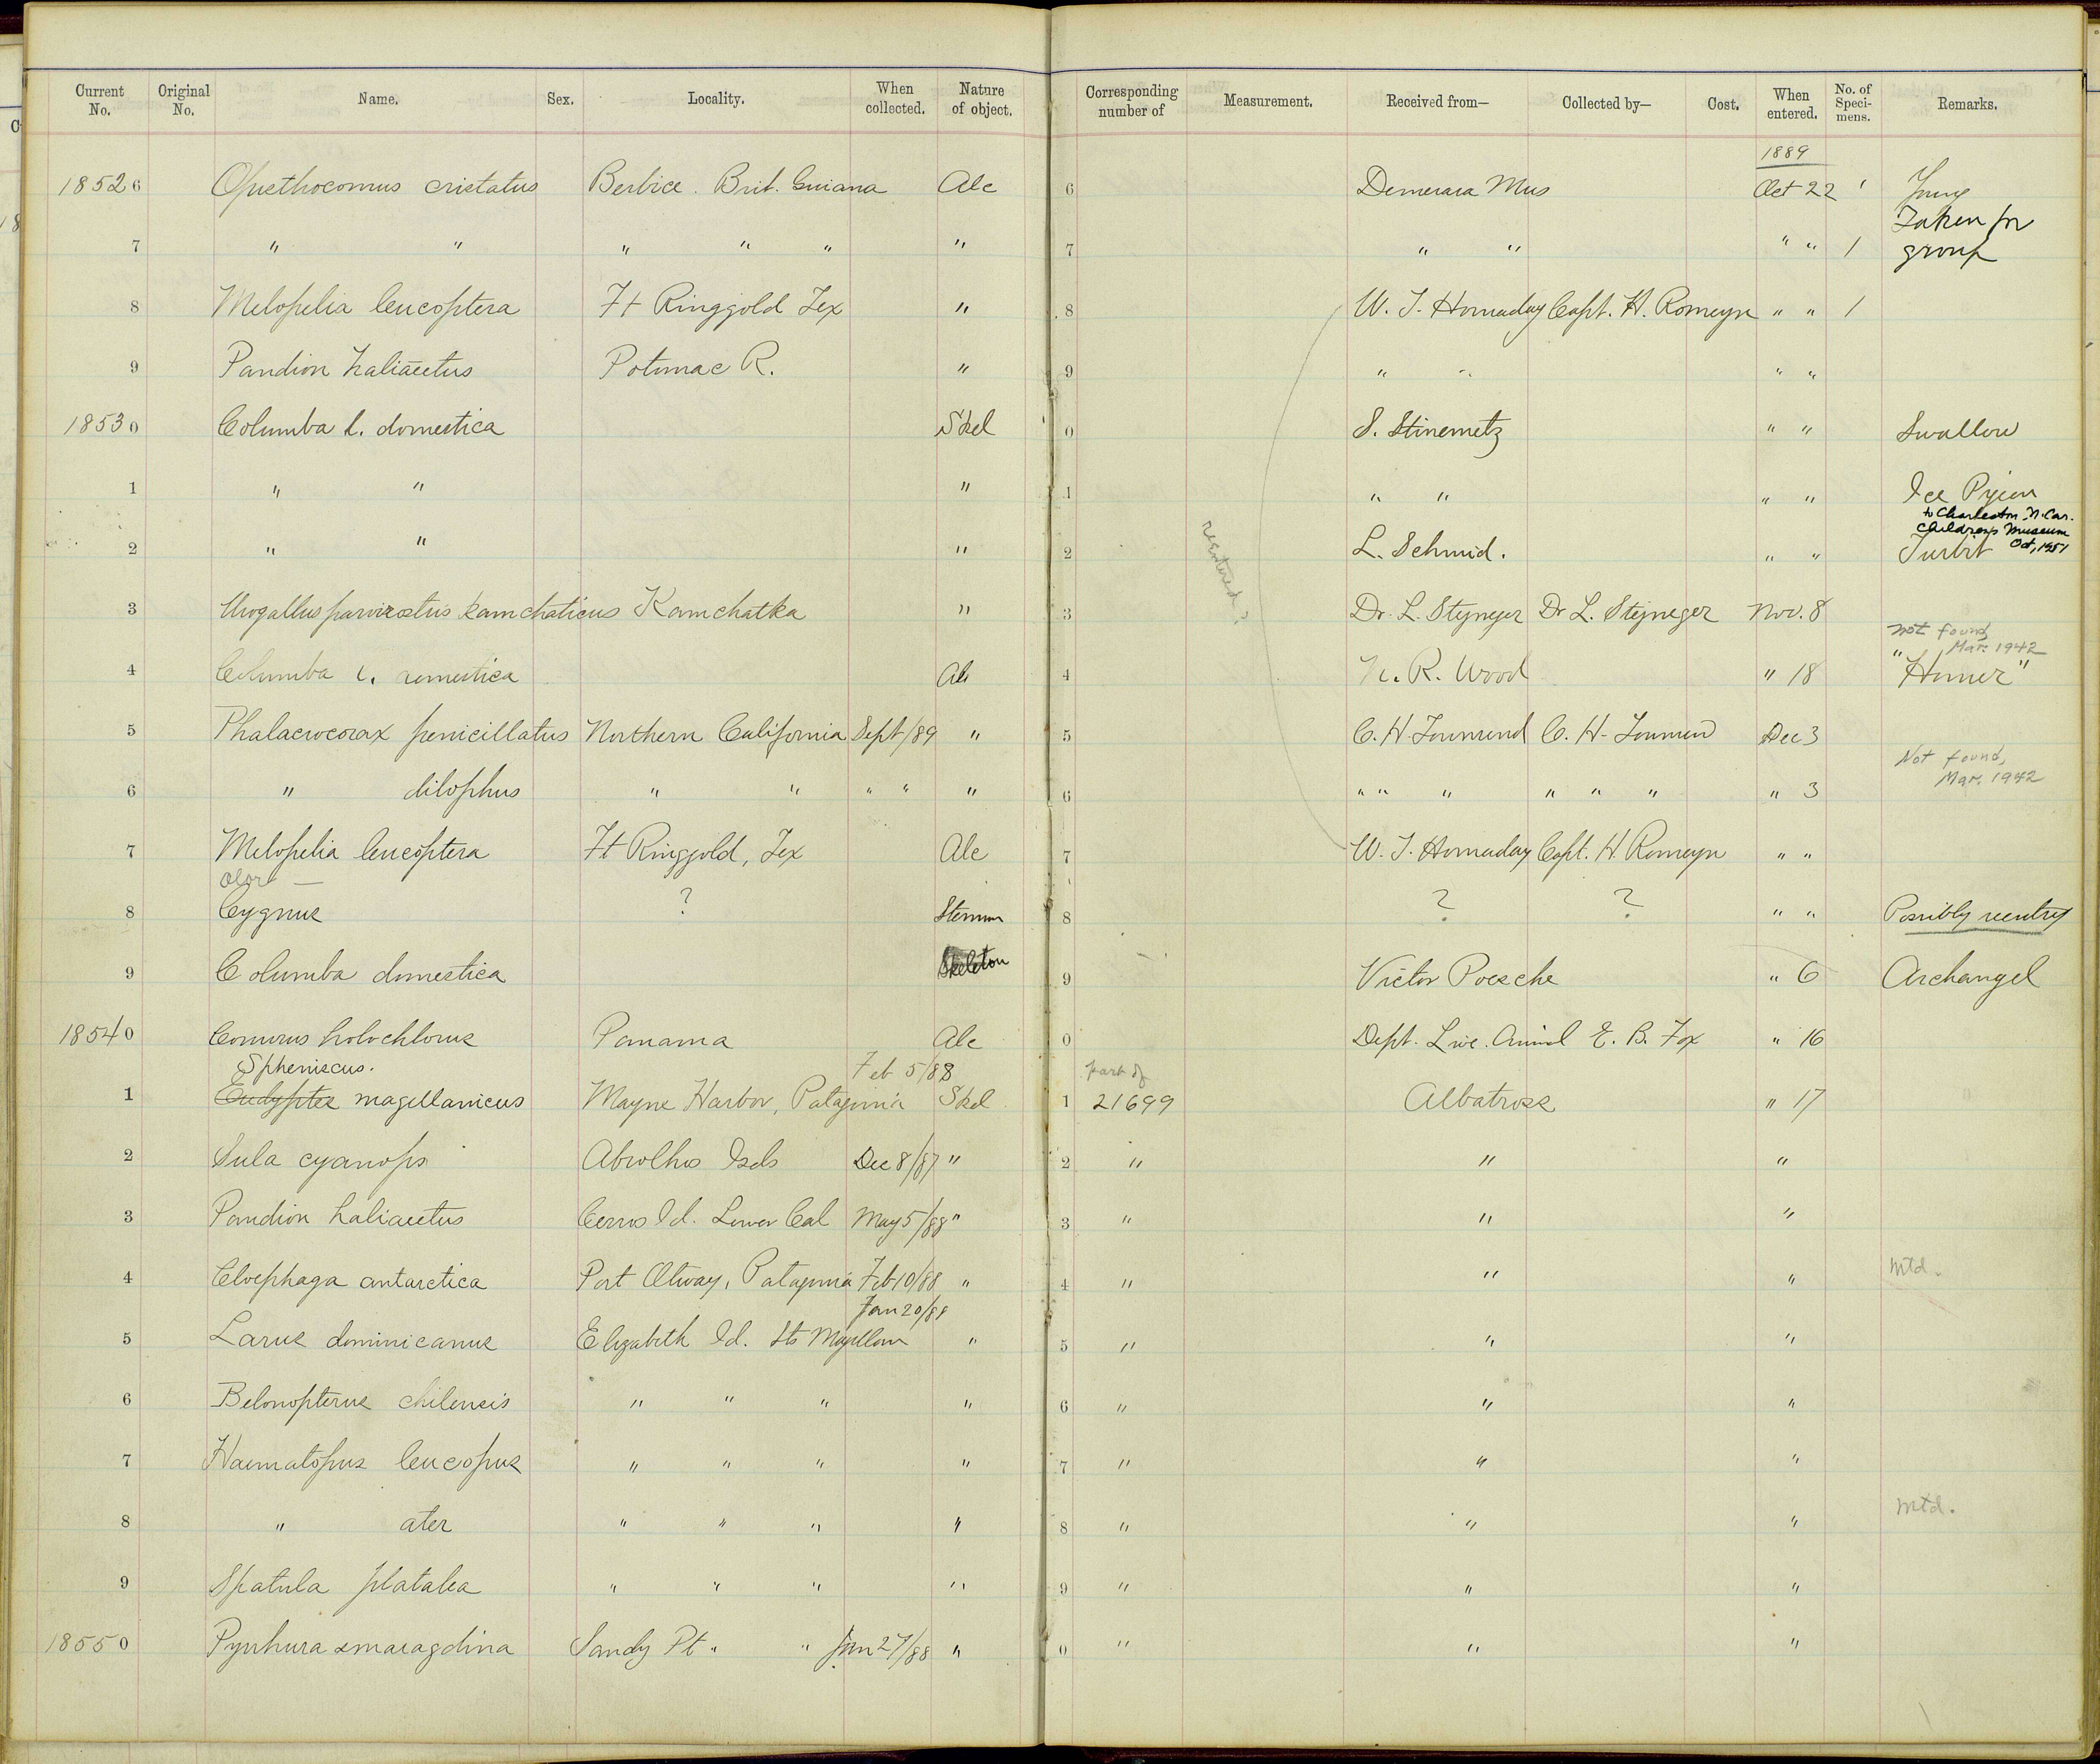 Current No. Original No. Name. Sex. Locality. When collected. Nature of object. Corresponding number of Measurement. Received from— Collected by— Cost. When entered. No. of Specimens. Remarks.
1889
18526 Opisthocomus cristatus Berbice. Brit. Guiana Alc 6 Demerara Mus Oct 22 1 Young
7 " " " " " " 7 " " " " 1 Taken for group
8 Melopelia leucoptera Ft Ringgold Tex " 8 W. T. Hornaday Capt. H. Romeyn " " 1
9 Pandion haliaetus Potomac R. " 9 " " " "
18530 Columba l. domestica Skel 0 S. Stinemetz " " Swallow
1 " " " 1 " " " " Ice Pigeon
to Charleston, N. Car. Childrens Museum Oct, 1951
2 " " " 2 L. Schmid. " " Turbit
reentered?
3 Urogallus parvirostris kamchaticus Kamchatka " 3 Dr. L. Stejneger Dr L. Stejneger Nov. 8
Not found, Mar. 1942
4 Columba l. domestica Alc 4 N. R. Wood " 18 "Homer"
5 Phalacrocorax penicillatus Northern California Sept/89 " 5 C. H. Townsend C. H. Townsend Dec 3
Not found, Mar. 1942
6 " dilophus " " " " " 6 " " " " " " " 3
7 Melopelia leucoptera Ft Ringgold, Tex Alc 7 W. T. Hornaday Capt. H. Romeyn " "
Olor —
8 Cygnus ? Sternum 8 ? ? " " Possibly reentry
9 Columba domestica Skeleton 9 Victor Poesche " 6 Archangel
18540 Conurus holochlorus Panama Alc 0 Dept. Live. Animal E. B. Fox " 16
Spheniscus. Feb 5/88 part of
1 Eudyptes magellanicus Mayne Harbor, Patagonia Skel 1 21699 Albatross " 17
2 Sula cyanops Abrolhos Isds Dec 8/87 " 2 " " "
3 Pandion haliaetus Cerros Id. Lower Cal May 5/88 " 3 " " "
4 Cloephaga antarctica Port Otway, Patagonia Feb 10/88 " 4 " " " Mtd.
Jan 20/88
5 Larus dominicanus Elizabeth Id. Sts Magellan " 5 " " "
6 Belonopterus chilensis " " " " 6 " " "
7 Haematopus leucopus " " " " 7 " " "
8 " ater " " " " 8 " " " Mtd.
9 Spatula platalea " " " " 9 " " "
18550 Pyrrhura smaragdina Sandy Pt " " Jan 27/88 " 0 " " "